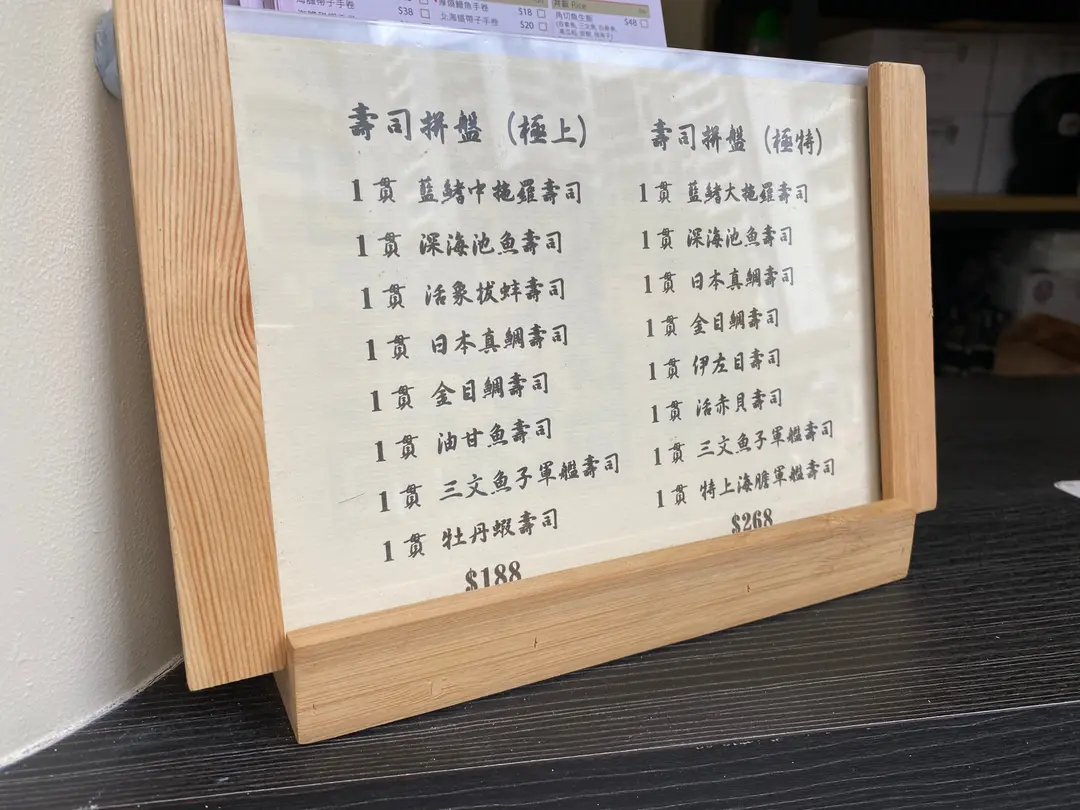 海膽帶子手卷
$38
$38
厚燒鰻魚手卷
$18
北海道帶子手卷
$20
Rice
角切魚生飯
$48
壽司拼盤（極上）
1 貫 藍鰭中拖羅壽司
1 貫 深海池魚壽司
1 貫 活象拔蚌壽司
1 貫 日本真鯛壽司
1 貫 金目鯛壽司
1 貫 油甘魚壽司
1 貫 三文魚子軍艦壽司
1 貫 牡丹蝦壽司
$188
壽司拼盤（極特）
1 貫 藍鰭大拖羅壽司
1 貫 深海池魚壽司
1 貫 日本真鯛壽司
1 貫 金目鯛壽司
1 貫 伊左目壽司
1 貫 活赤貝壽司
1 貫 三文魚子軍艦壽司
1 貫 特上海膽軍艦壽司
$268